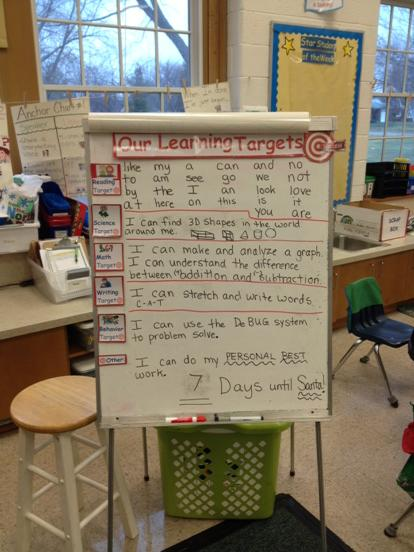 Star Student
of the Week
Anchor Charts
Our Learning Targets
Reading
Target
like my a can and no
to am see go we not
by the I an look love
at here on this is it
you are
Science
Target
I can find 3D shapes in the world
around me.
Math
Target
I can make and analyze a graph.
I can understand the difference
between addition and subtraction.
Writing
Target
I can stretch and write words.
C-A-T
Behavior
Target
I can use the DeBUG system
to problem solve.
Other
I can do my PERSONAL BEST
work.
7 Days until Santa!
SCRAP
BOX